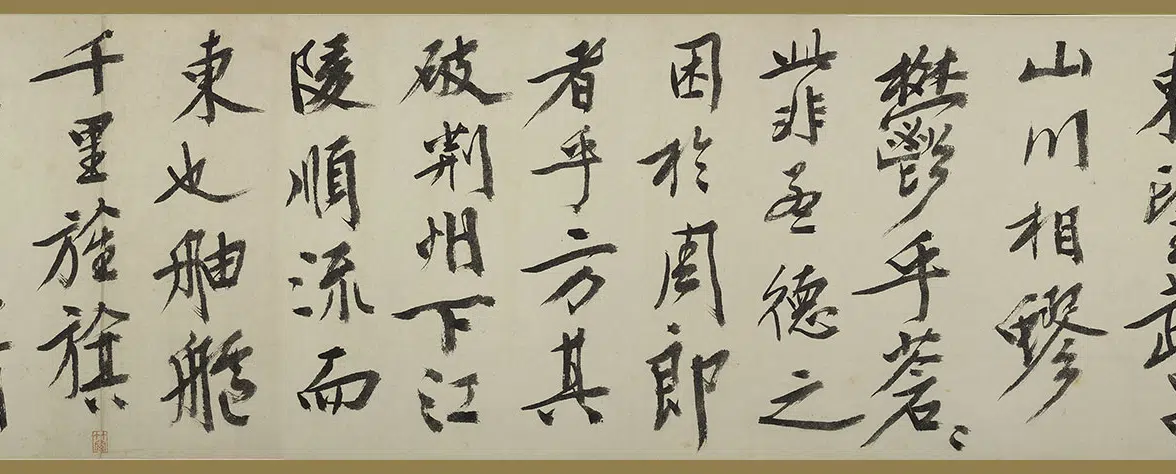 東望武昌
山川相繆
鬱乎蒼〻
此非孟德之
困於周郎
者乎方其
破荊州下江
陵順流而
東也舳艫
千里旌旗